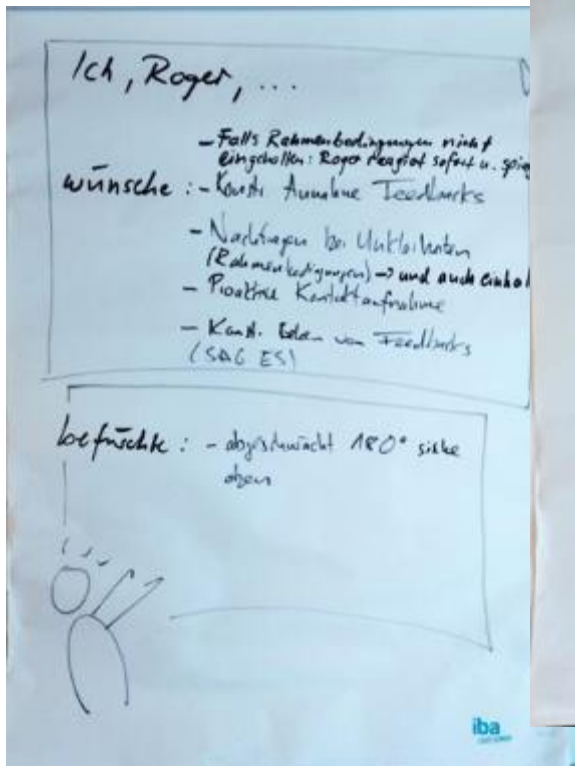 Ich, Roger, ...
– Falls Rahmenbedingungen nicht
eingehalten: Roger reagiert sofort u.
wünsche : – Konstr. Annahme Feedbacks
– Nachfragen bei Unklarheiten
(Rahmenbedigungen) → und auch einhol
– Proaktive Kontaktaufnahme
– Konst. Geben von Feedbacks
(SAG ES)
befürchte : – abgeschwächt 180° siehe
oben
iba